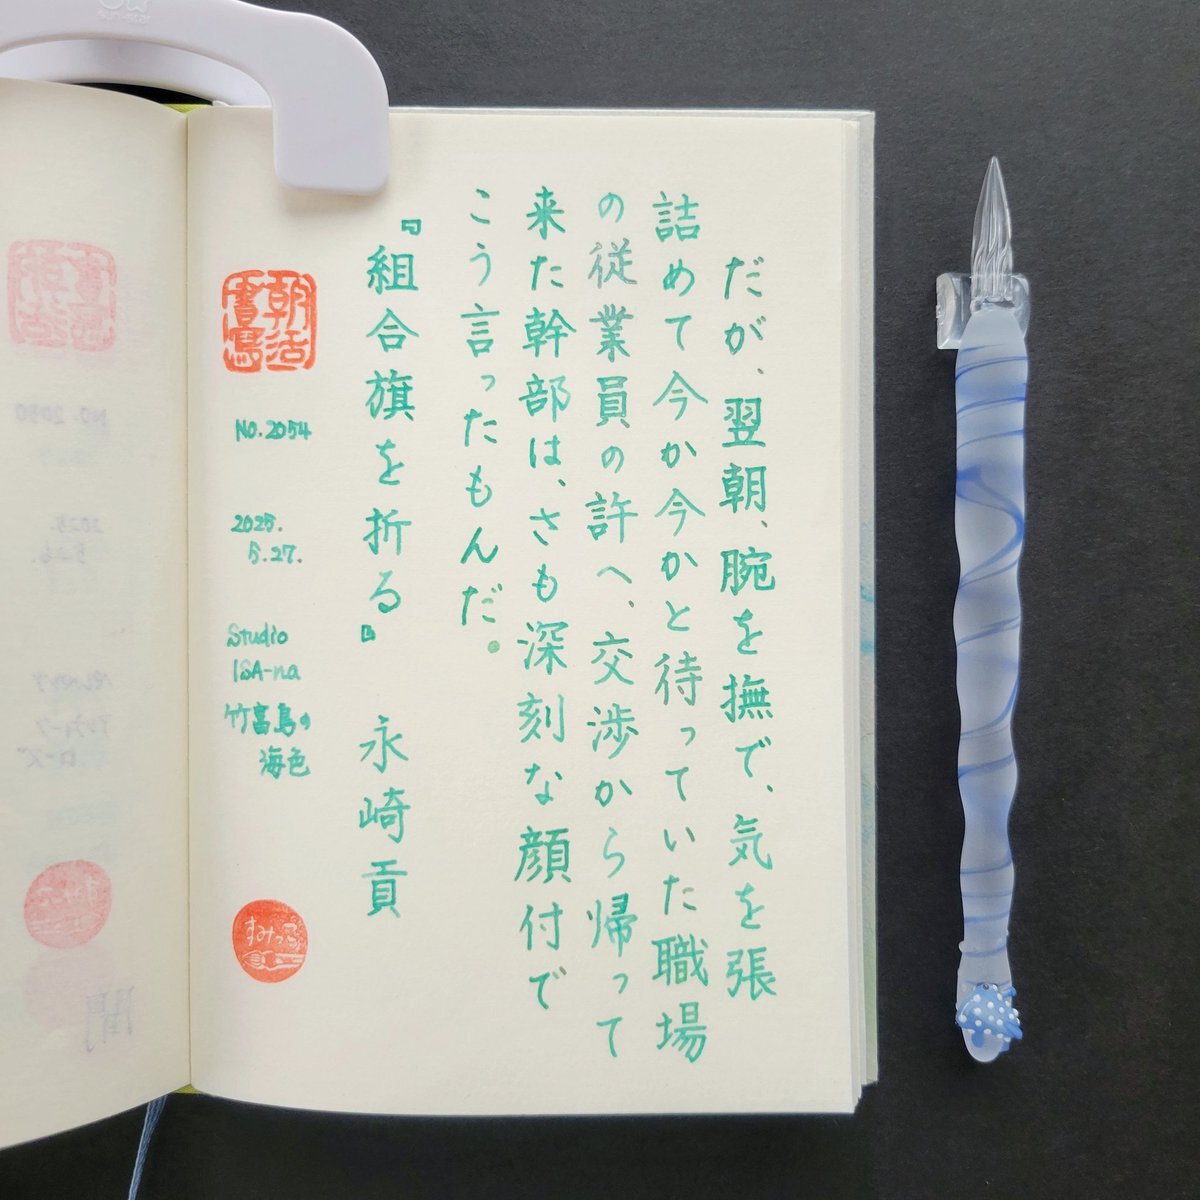 だが、翌朝、腕を撫で、気を張
詰めて今か今かと待っていた職場
の従業員の許へ、交渉から帰って
来た幹部は、さも深刻な顔付で
こう言ったもんだ。
『組合旗を折る』 永崎貢
朝活書写
No.2054
2025.
5.27.
Studio
ISA-na
竹富島の
海色
すみっこ